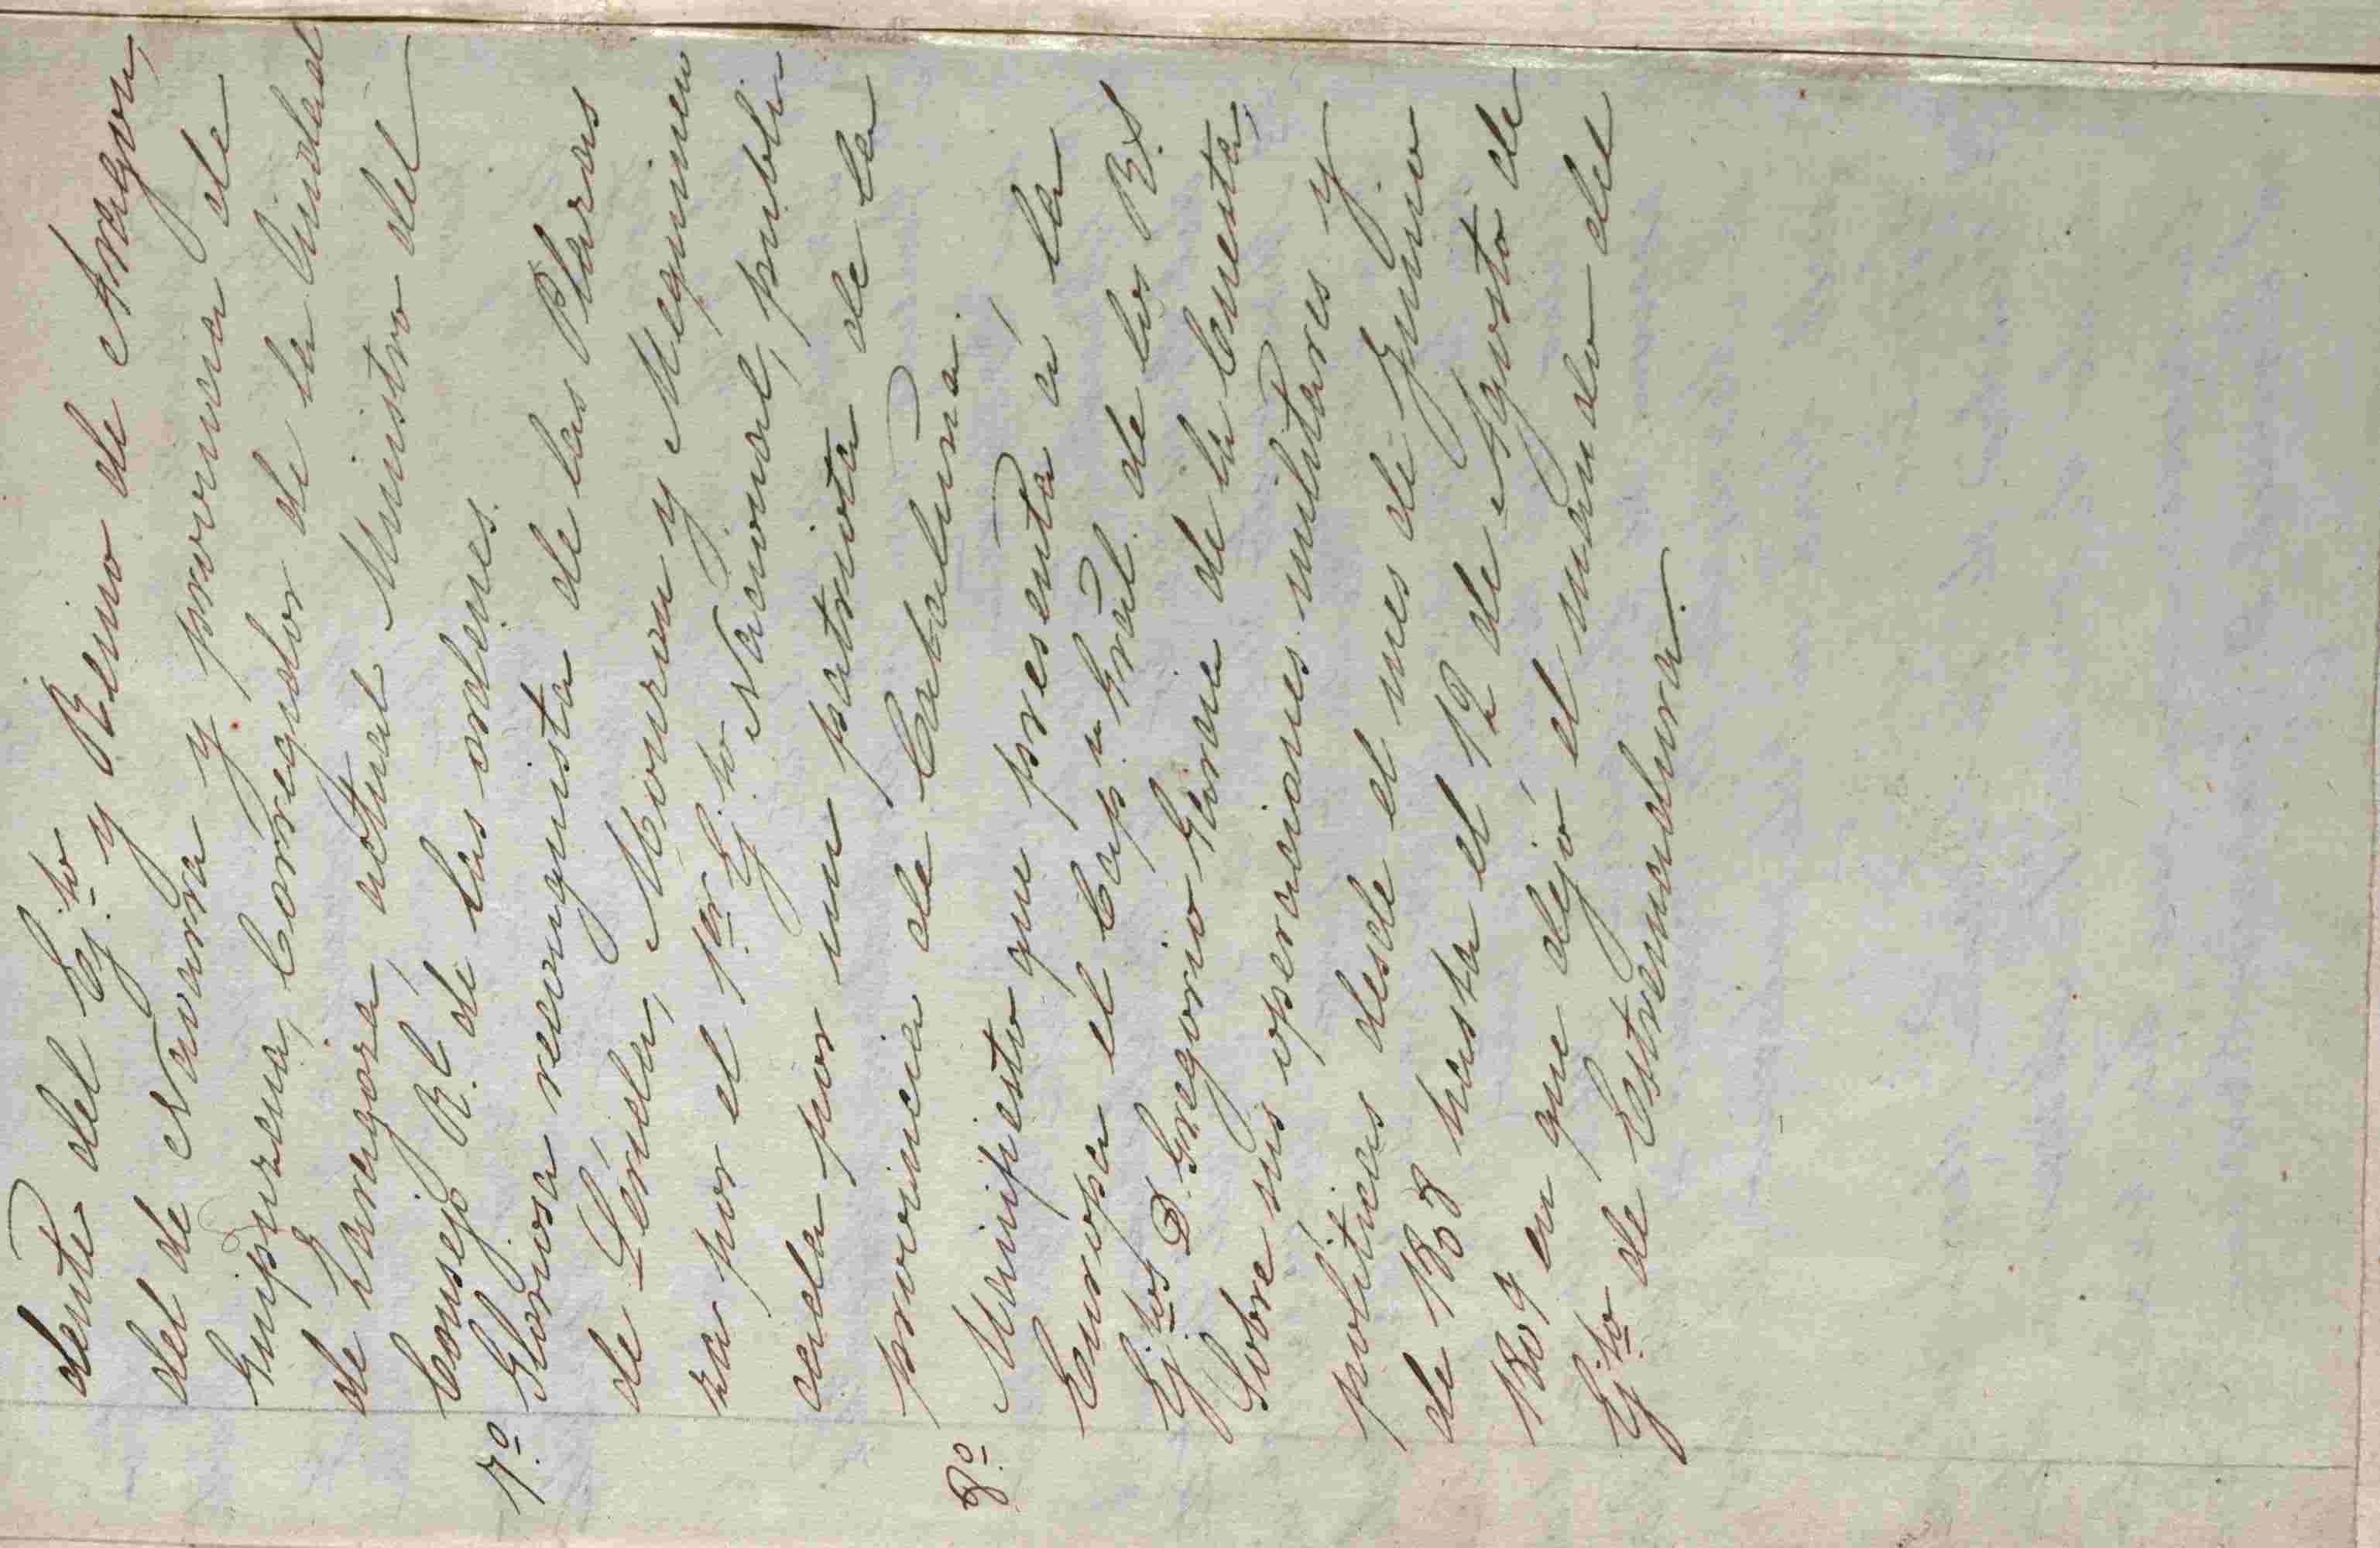 dente del Ej.to y Reino de Aragon,
del de Navarra y provincia de
Guipuzcua, Corregidor de la Ciudad
de Zaragoza, actual Ministro del
Consejo R.l de las ordenes.
7.º Gloriosa reconquista de las Plazas
de Lérida, Monzon y Mequinen
za por el 1.er Ej.to Nacional, publi
cada por un patriota de la
provincia de Cataluña.
8.º Manifiesto que presenta á la
Europa el Cap.n Gràl. de los R.s
Ej.tos D. Gregorio Garcia de la Cuesta,
Sobre sus operaciones militares y
políticas desde el mes de Junio
de 1808 hasta el 12 de Agosto de
1809 en que dejó el mando del
Ej.to de Estremadura.